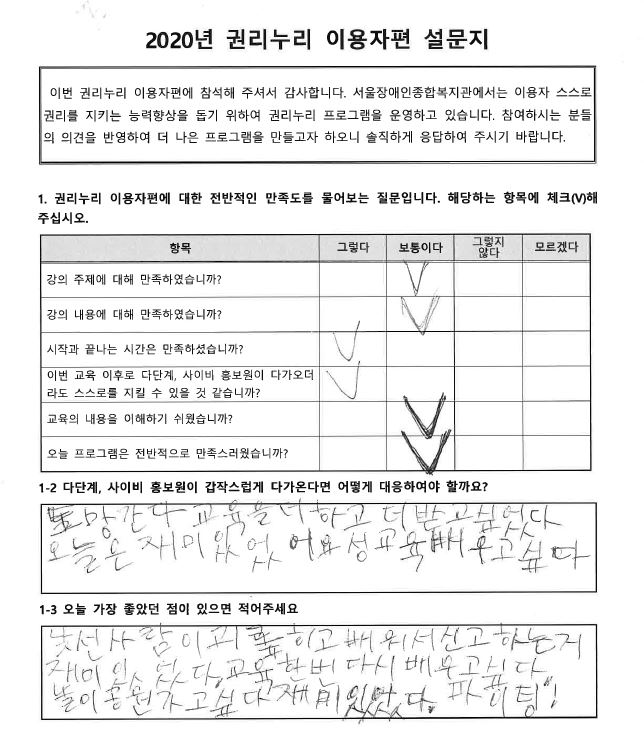 2020년 권리누리 이용자편 설문지
이번 권리누리 이용자편에 참석해 주셔서 감사합니다. 서울장애인종합복지관에서는 이용자 스스로
권리를 지키는 능력향상을 돕기 위하여 권리누리 프로그램을 운영하고 있습니다. 참여하시는 분들
의 의견을 반영하여 더 나은 프로그램을 만들고자 하오니 솔직하게 응답하여 주시기 바랍니다.
1. 권리누리 이용자편에 대한 전반적인 만족도를 물어보는 질문입니다. 해당하는 항목에 체크(V)해
주십시오.
항목 그렇다 보통이다 그렇지 않다 모르겠다
강의 주제에 대해 만족하였습니까? V
강의 내용에 대해 만족하였습니까? V
시작과 끝나는 시간은 만족하셨습니까? V
이번 교육 이후로 다단계, 사이비 홍보원이 다가오더
라도 스스로를 지킬 수 있을 것 같습니까? V
교육의 내용을 이해하기 쉬웠습니까? V
오늘 프로그램은 전반적으로 만족스러웠습니까? V
1-2 다단계, 사이비 홍보원이 갑작스럽게 다가온다면 어떻게 대응하여야 할까요?
도망간다 교육을 더 하고 더 받고 싶었다
오늘은 재미있었어요 성교육 배우고 싶다
1-3 오늘 가장 좋았던 점이 있으면 적어주세요
낯선사람이 괴롭히고 배워서 신고하는지
재미있었다 교육 한번 다시 배우고 싶다
놀이공원가고싶다 재미있었다. 파이팅!